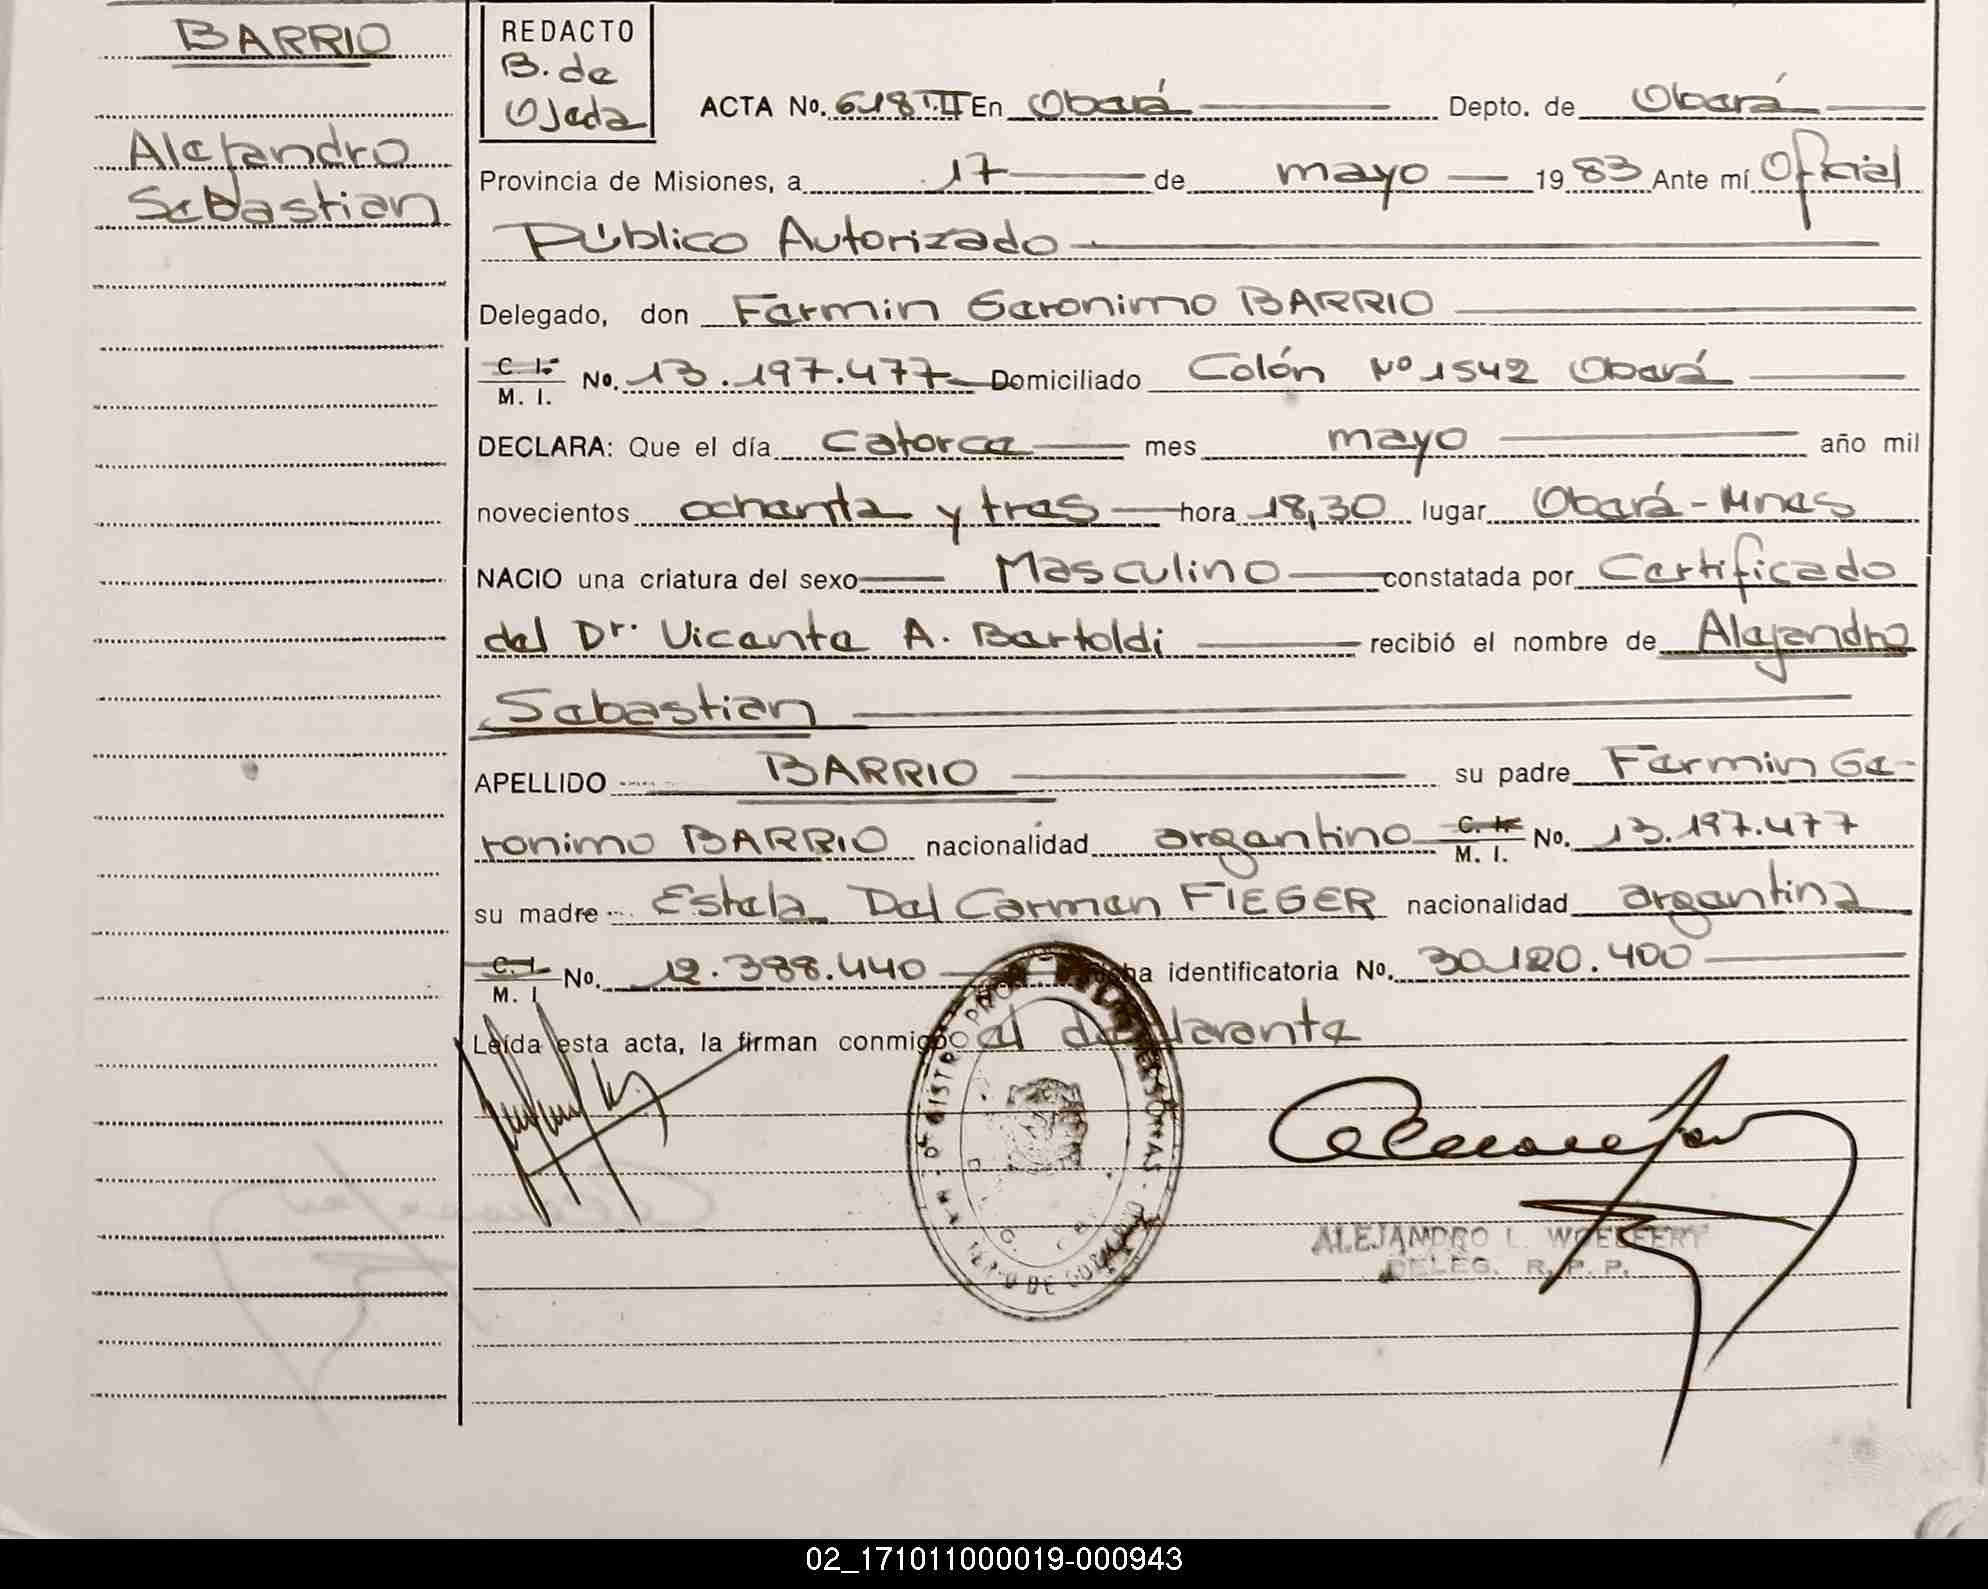 BARRIO
Alejandro
Sebastian
REDACTO
B. de
Ojeda
ACTA No. 618 T.II En Oberá Depto. de Oberá
Provincia de Misiones, a 17 de mayo 1983 Ante mí Oficial
Público Autorizado
Delegado, don Fermin Geronimo BARRIO
C. I. M. I. No. 13.197.477 Domiciliado Colón Nº 1542 Oberá
DECLARA: Que el día catorce mes mayo año mil
novecientos ochenta y tres hora 18,30 lugar Oberá - Mnes
NACIO una criatura del sexo Masculino constatada por Certificado
del Dr. Vicente A. Bertoldi recibió el nombre de Alejandro
Sebastian
APELLIDO BARRIO su padre Fermin Ge-
ronimo BARRIO nacionalidad argentino C. I. M. I. No. 13.197.477
su madre Estela Del Carmen FIEGER nacionalidad argentina
C. I. M. I. No. 12.388.440 identificatoria No. 30.120.400
Leída esta acta, la firman conmigo el declarante
ALEJANDRO L. WOELFERT
DELEG. R. P. P.
02_171011000019-000943